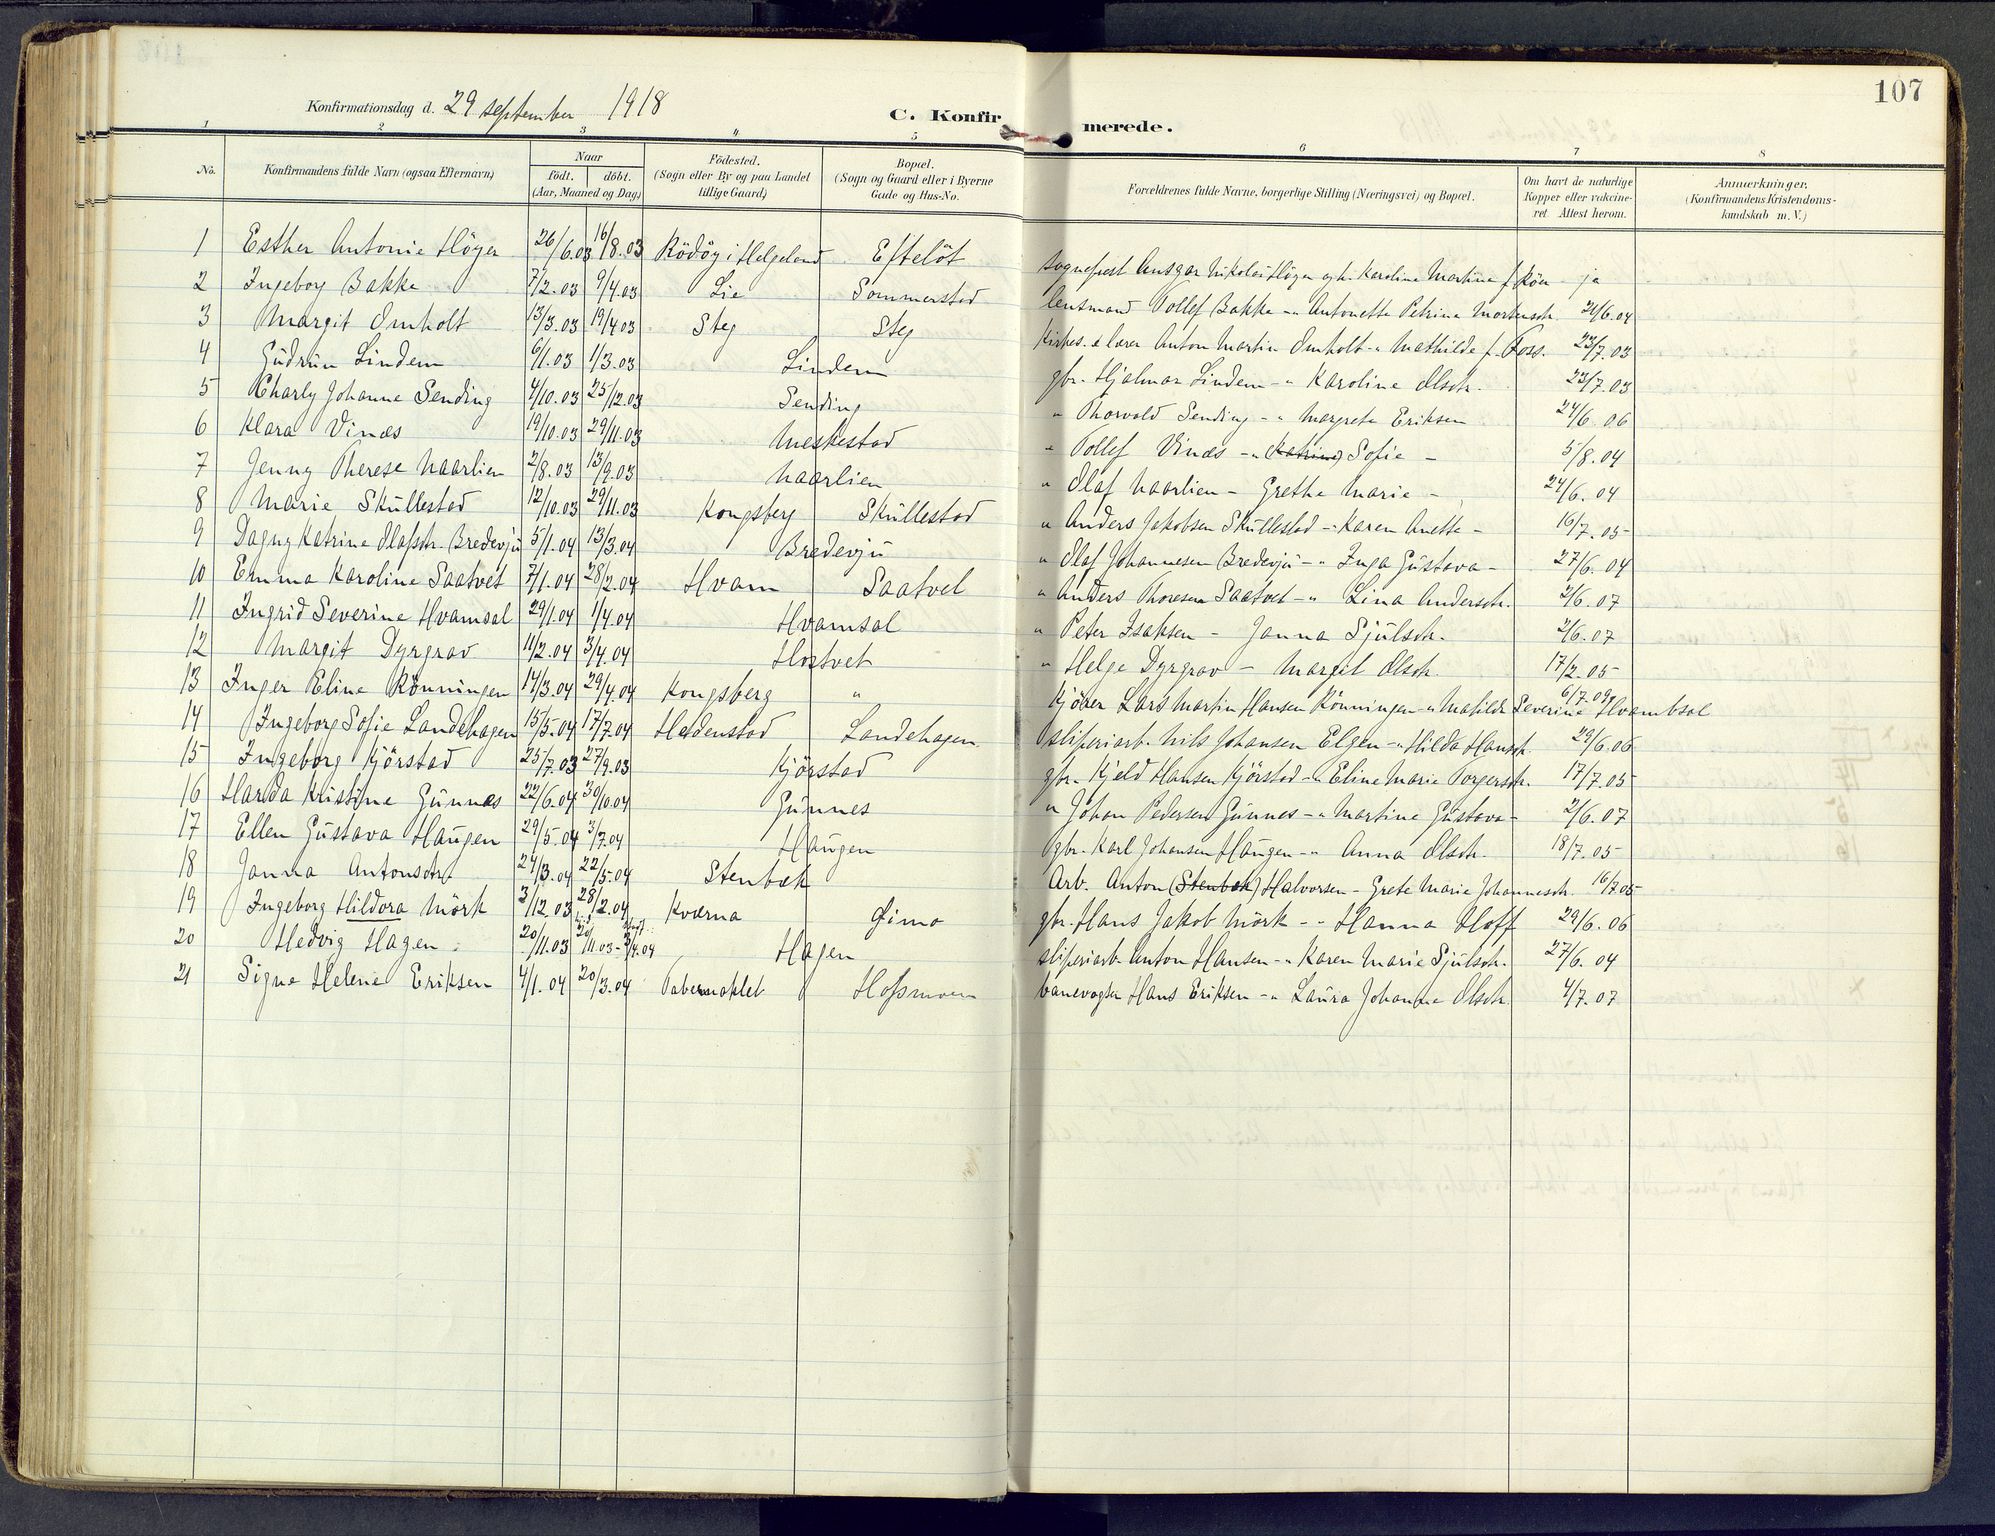 107
Konfirmationsdag d. 29 september 1918
C. Konfirmerede.
1 2 3 4 5 6 7 8
No. Konfirmandens fulde Navn (ogsaa Efternavn) Naar födt. döbt. (Aar, Maaned og Dag) Födested. (Sogn eller By og paa Landet tillige Gaard) Bopæl. (Sogn og Gaard eller i Byerne Gade og Hus-No. Forældrenes fulde Navne, borgerlige Stilling (Næringsvei) og Bopæl. Om havt de naturlige Kopper eller vakcineret Attest herom. Anmærkninger. (Konfirmandens Kristendomskundskab m. V.)
1 Esther Antonie Höyer 26/6.03 16/8.03 Rödöy i Helgeland Efteløt sogneprest Ansgar Nikolai Höyer og h. Karoline Martine f. ja
2 Ingeborg Bakke 7/2.03 9/4.03 Lie Sommerstad lensmand Tollef Bakke -"- Antonette Petrine Mortensdtr. 21/6.04
3 Margit Omholt 13/3.03 19/4.03 Steg Steg Kirkes. & lærer Anton Martin Omholt -"- Mathilde f. Foss. 23/7.03
4 Gudrun Lindem 6/1.03 1/3.03 Lindem gbr. Hjalmar Lindem -"- Karoline Olsdtr. 23/7.03
5 Charly Johanne Sending 4/10.03 25/12.03 Sending " Thorvald Sending -"- Margrete Eriksen 24/6.06
6 Klara Vinæs 19/10.03 29/11.03 Meskestad " Tollef Vinæs -"- (Katrine) Sofie - 5/8.04
7 Jenny Therese Naarlien 2/8.03 13/9.03 Naarlien " Olaf Naarlien - Grethe Marie - 24/6.04
8 Marie Skullestad 12/10.03 29/11.03 Kongsberg Skullestad " Anders Jakobsen Skullestad -"- Karen Anette - 16/7.05
9 Dagny Katrine Olafsdtr. Bredevju 5/1.04 13/3.04 Bredevju " Olaf Johannesen Bredevju -"- Inga Gustava - 27/6.04
10 Emma Karoline Saatvet 7/1.04 28/2.04 Hvam Saatvet " Anders Thoresen Saatvet -"- Lina Andersdtr. 2/6.07
11 Ingrid Severine Hvamsal 29/1.04 1/4.04 Hvamsal " Peter Isaksen - Janna Sjulsdtr. 2/6.07
12 Margit Dyrgrav 11/2.04 3/4.04 Hostvet " Helge Dyrgrav - Margit Olsdtr. 17/2.05
13 Inger Eline Rönningen 14/3.04 29/4.04 Kongsberg " Kjörer Lars Martin Hansen Rönningen -"- Matilde Severine Hvambsal 6/7.09
14 Ingeborg Sofie Landehagen 15/5.04 17/7.04 Hedenstad Landehagen sliperiarb. Nils Johansen Elgen -"- Hilda Hansdtr. 29/6.06
15 Ingeborg Kjörstad 25/7.03 27/9.03 Kjörstad gbr. Kjeld Hansen Kjörstad -"- Eline Marie Torgersdtr. 17/7.05
16 Harda Kristine Gunnes 22/6.04 30/10.04 Gunnes " Johan Pedersen Gunnes -"- Martine Gustava - 2/6.07
17 Ellen Gustava Haugen 29/5.04 3/7.04 Haugen gbr. Karl Johansen Haugen -"- Anna Olsdtr. 18/7.05
18 Janna Antonsdtr. 24/3.04 22/5.04 Stenbæk Arb. Anton (Stenbæk) Halvorsen - Grete Marie Johannesdtr. 16/7.05
19 Ingeborg Hildora Mörk 3/12.03 28/2.04 Kværna Gimo gbr. Hans Jakob Mörk -"- Hanna Hoff 29/6.06
20 Hedvig Hagen 20/11.03 20/11.03 - 3/4.04 Hagen sliperiarb. Anton Hansen -"- Karen Marie Sjulsdtr. 27/6.04
21 Signe Helene Eriksen 4/1.04 20/3.04 Tabernaklet Hofsmoen banevogter Hans Eriksen -"- Laura Johanne Olsdtr. 4/7.07